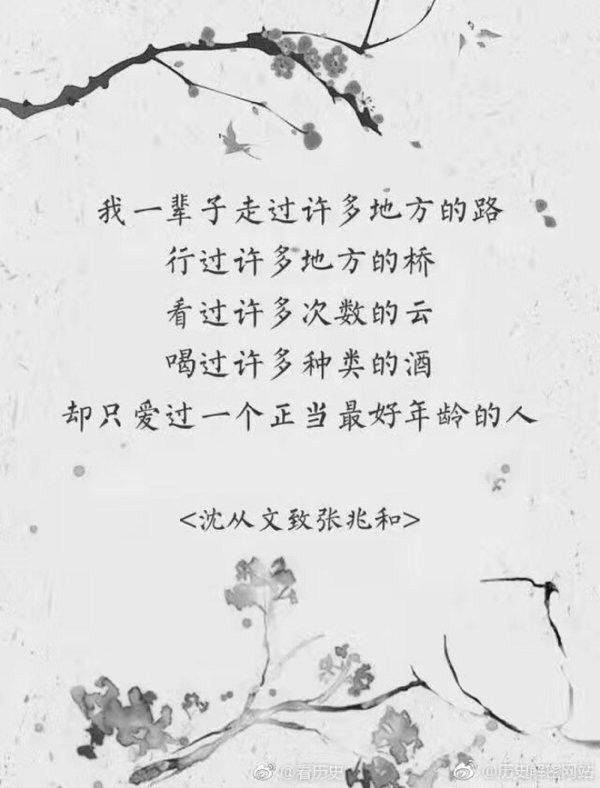 我一辈子走过许多地方的路
行过许多地方的桥
看过许多次数的云
喝过许多种类的酒
却只爱过一个正当最好年龄的人
<沈从文致张兆和>
@看历史
@历史解密网站